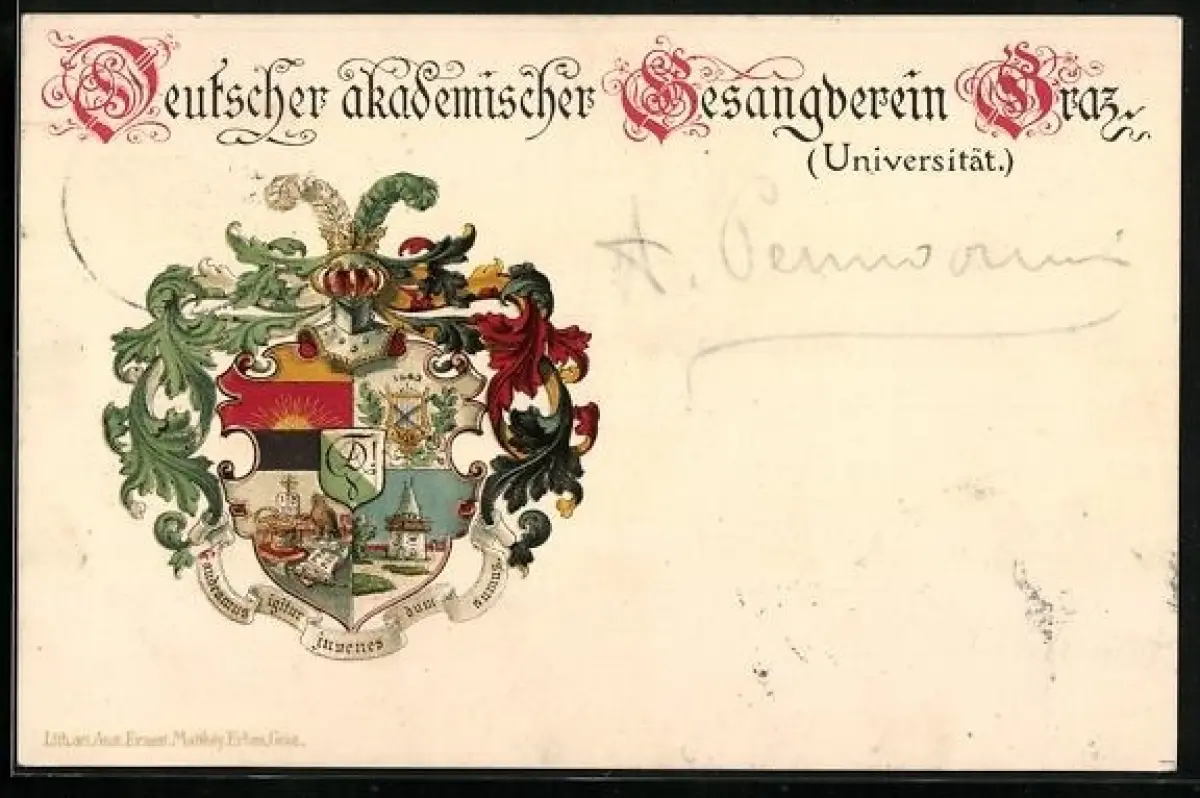 Deutscher akademischer Gesangverein Graz.
(Universität.)
A.
1863
Gaudeamus igitur juvenes dum sumus.
Lith. art. Anst. Ernest. Matthéy Erben, Graz.